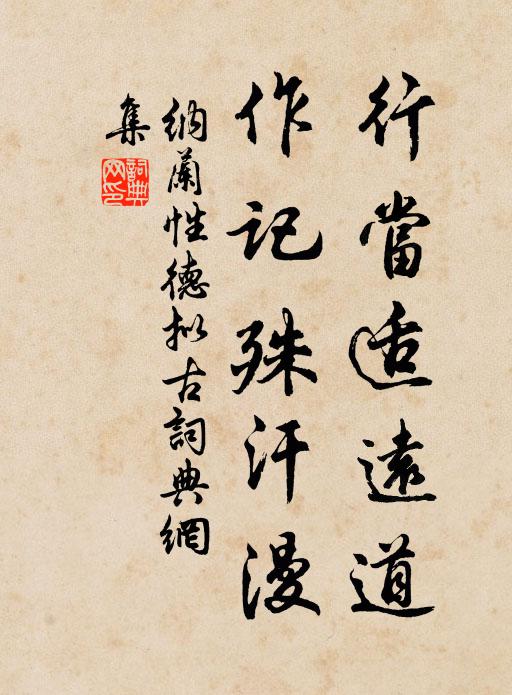 行當适遠道
作記殊汗漫
納蘭性德拟古詞典網
集
詞典網印